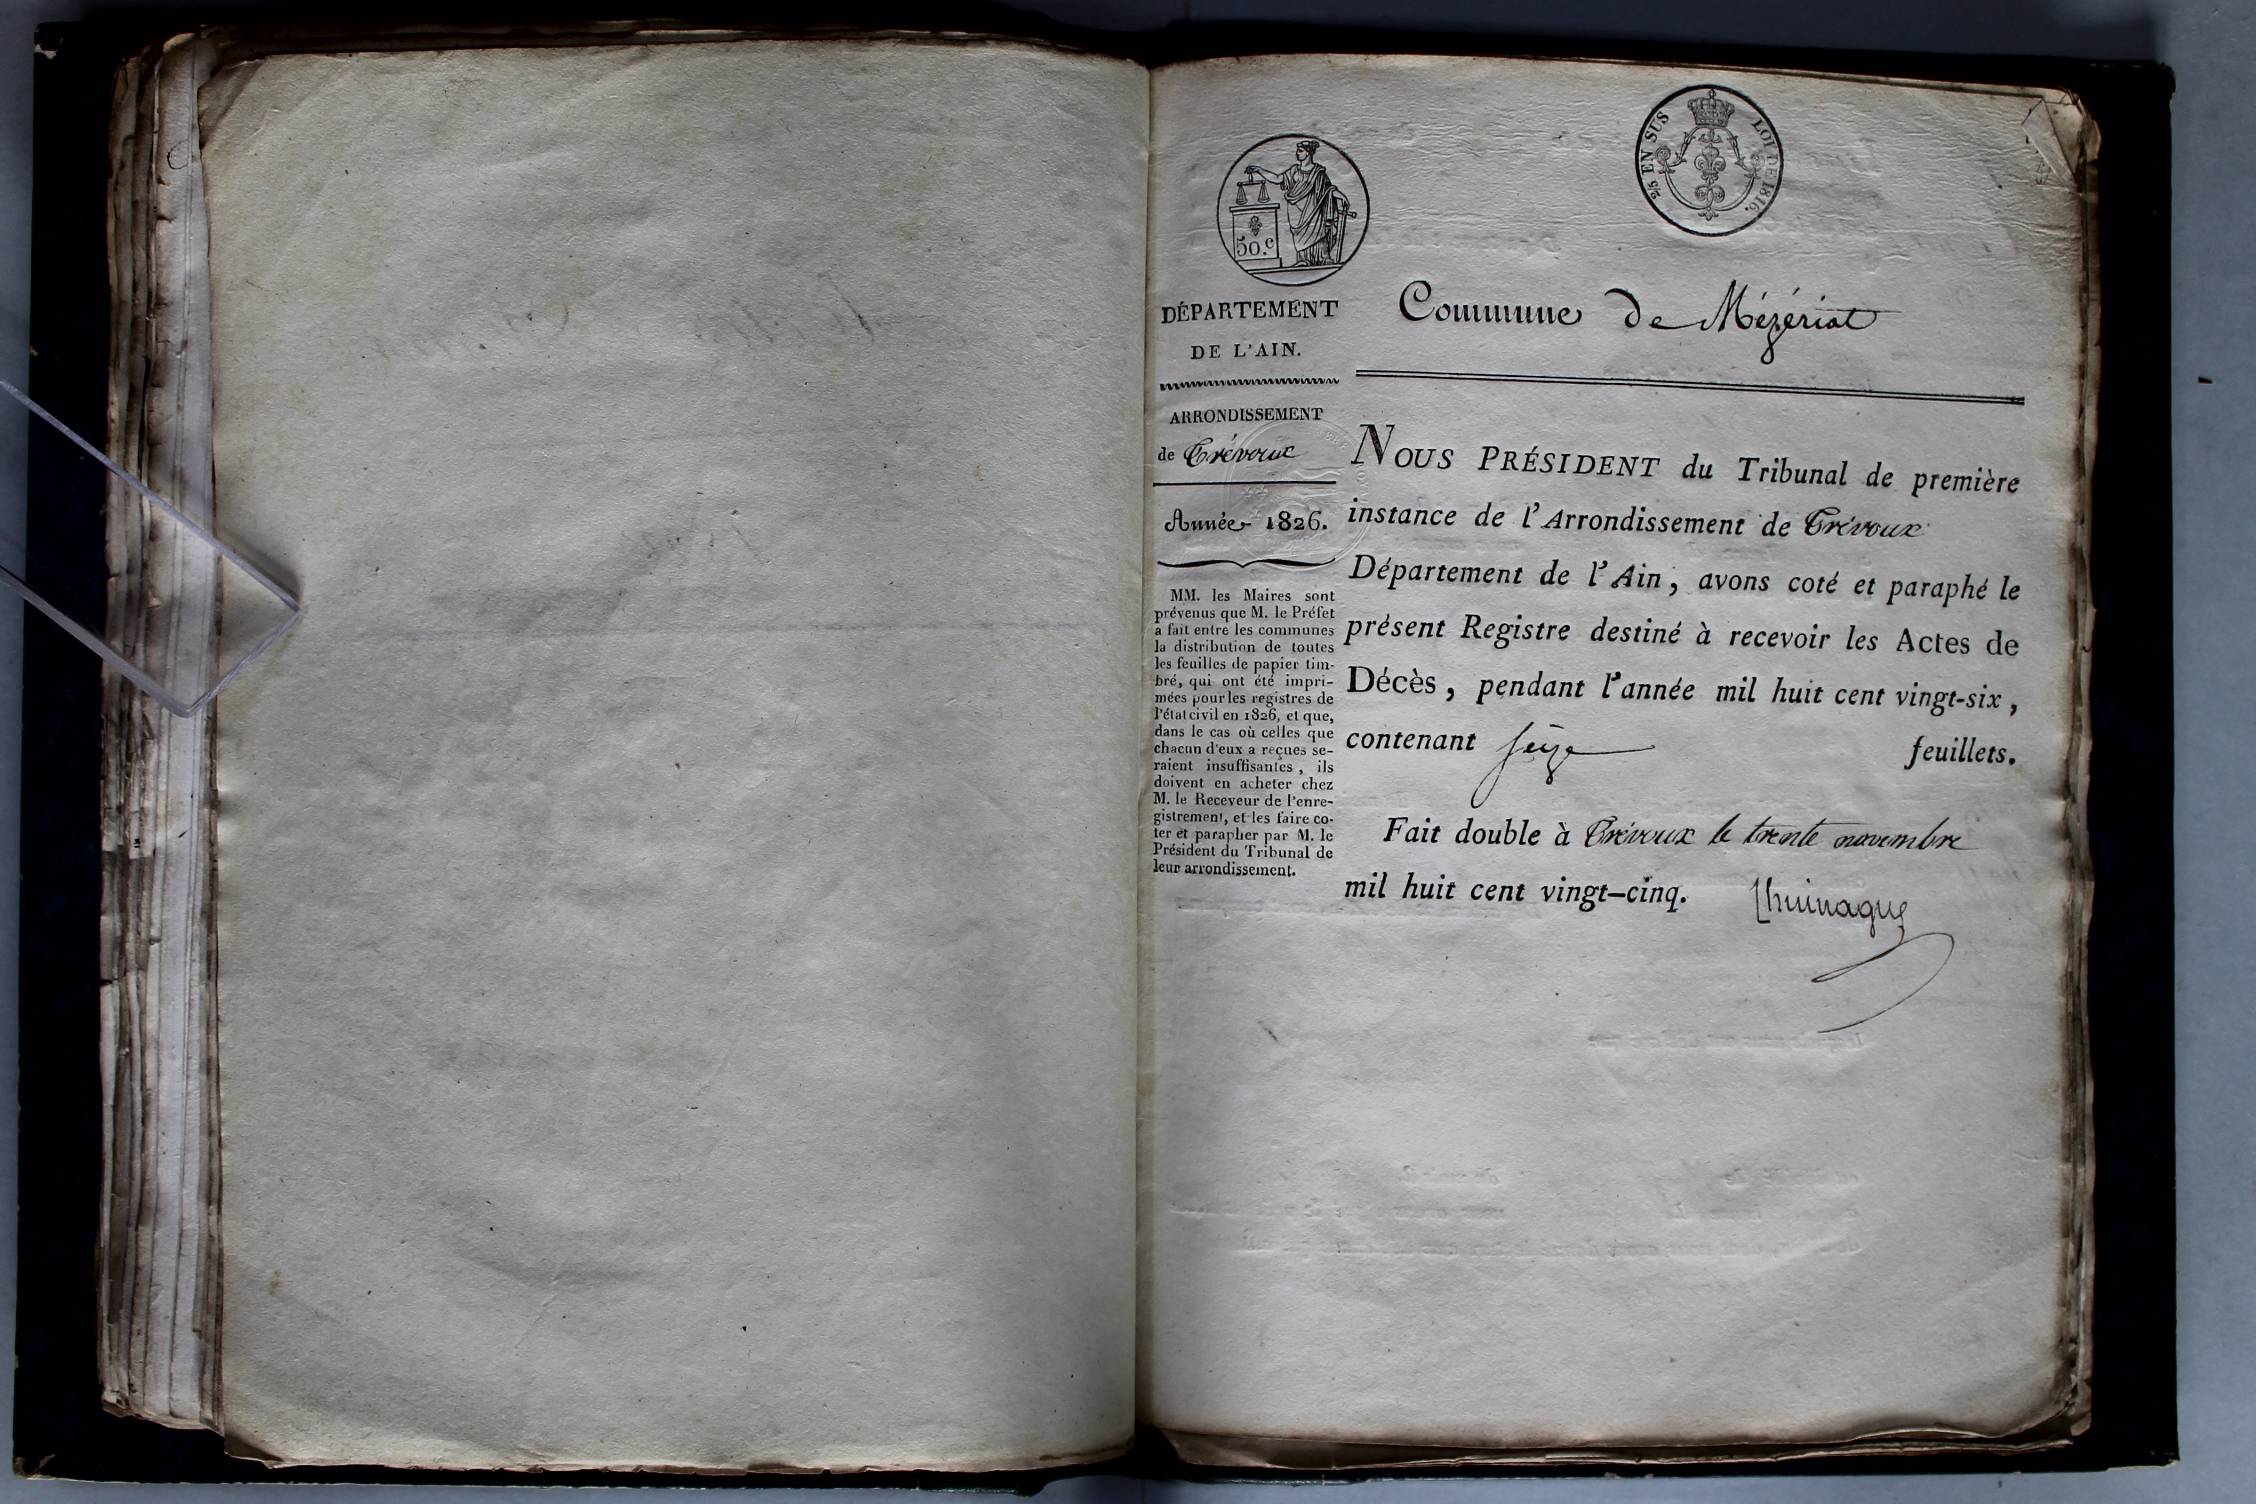 50.c
2/5 EN SUS LOI DE 1816.
DÉPARTEMENT
DE L'AIN.
ARRONDISSEMENT
de Trévoux
Année 1826.
MM. les Maires sont
prévenus que M. le Préfet
a fait entre les communes
la distribution de toutes
les feuilles de papier tim-
bré, qui ont été impri-
mées pour les registres de
l'état civil en 1826, et que,
dans le cas où celles que
chacun d'eux a reçues se-
raient insuffisantes, ils
doivent en acheter chez
M. le Receveur de l'enre-
gistrement, et les faire co-
ter et parapher par M. le
Président du Tribunal de
leur arrondissement.
Commune de Mézériat
NOUS PRÉSIDENT du Tribunal de première
instance de l'Arrondissement de Trévoux
Département de l'Ain, avons coté et paraphé le
présent Registre destiné à recevoir les Actes de
Décès, pendant l'année mil huit cent vingt-six,
contenant seize feuillets.
Fait double à Trévoux le trente novembre
mil huit cent vingt-cinq.